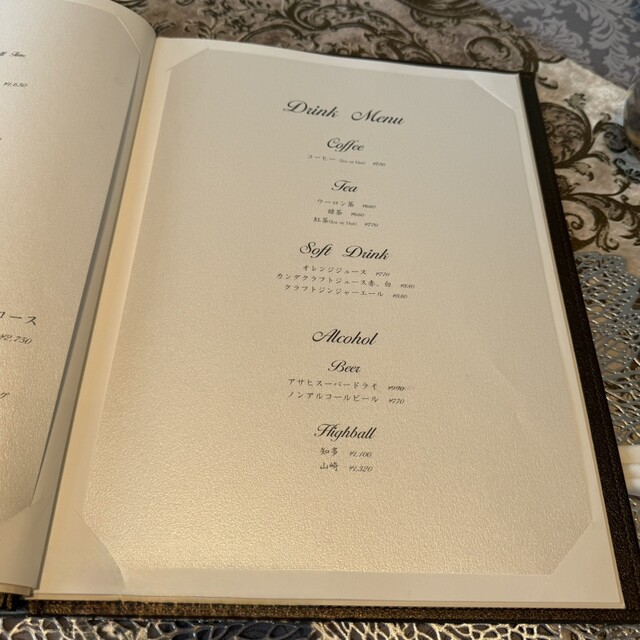 ¥1,650
コース
¥2,750
グ
Drink Menu
Coffee
コーヒー (Ice or Hot)
Tea
ウーロン茶 ¥660
緑茶 ¥660
紅茶(Ice or Hot) ¥770
Soft Drink
オレンジジュース ¥770
カシグクラフトジュース赤、白
クラフトジンジャーエール
Alcohol
Beer
アサヒスーパードライ ¥990
ノンアルコールビール ¥770
Highball
知多 ¥1,100
山崎 ¥1,320